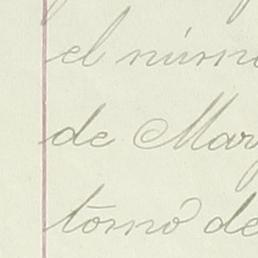 el núm
de Mar
tomó de